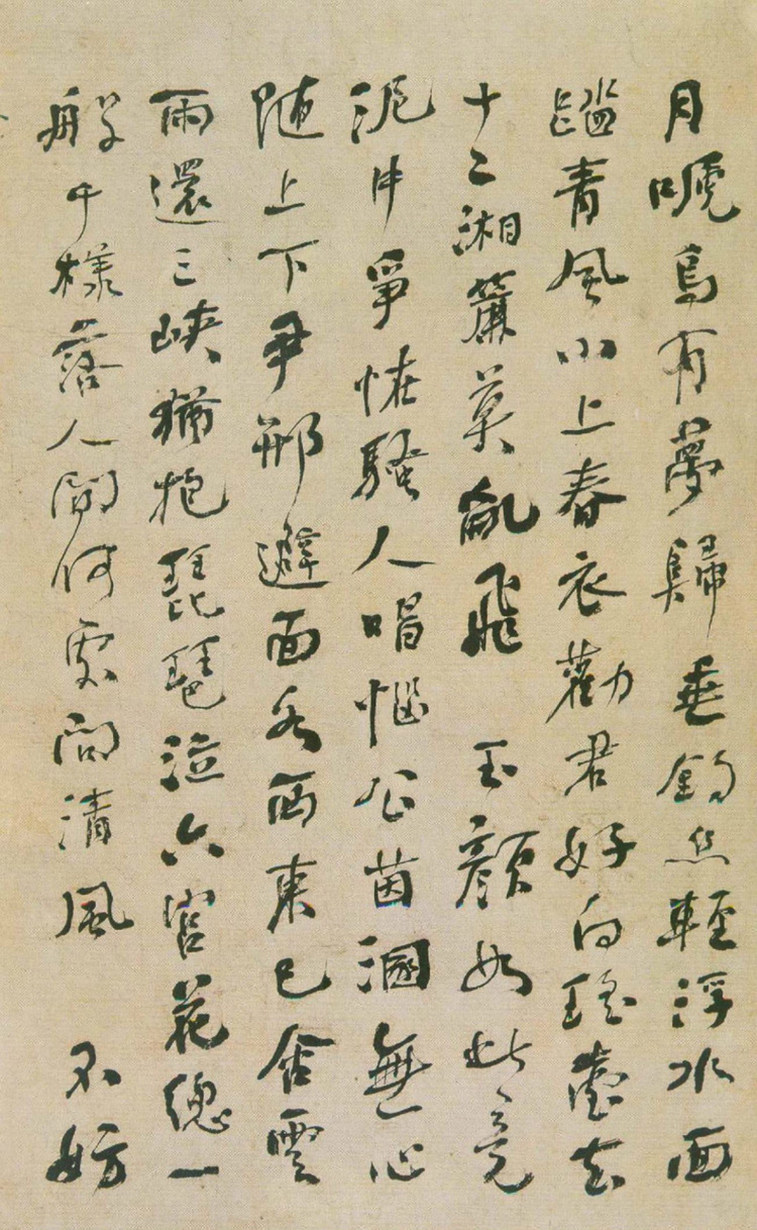 月嗁烏有夢歸垂釣絲輕浮水面
踏青風小上春衣勸君好向瑤臺去
十二湘簾莫亂飛 玉顏如此竟
泥中爭怪騷人唱惱公茵溷無心
隨上下尹邢避面各西東已舍雲
雨還三峽猶抱琵琶泣六宮花總一
般千樣落人間何處問清風 不妨